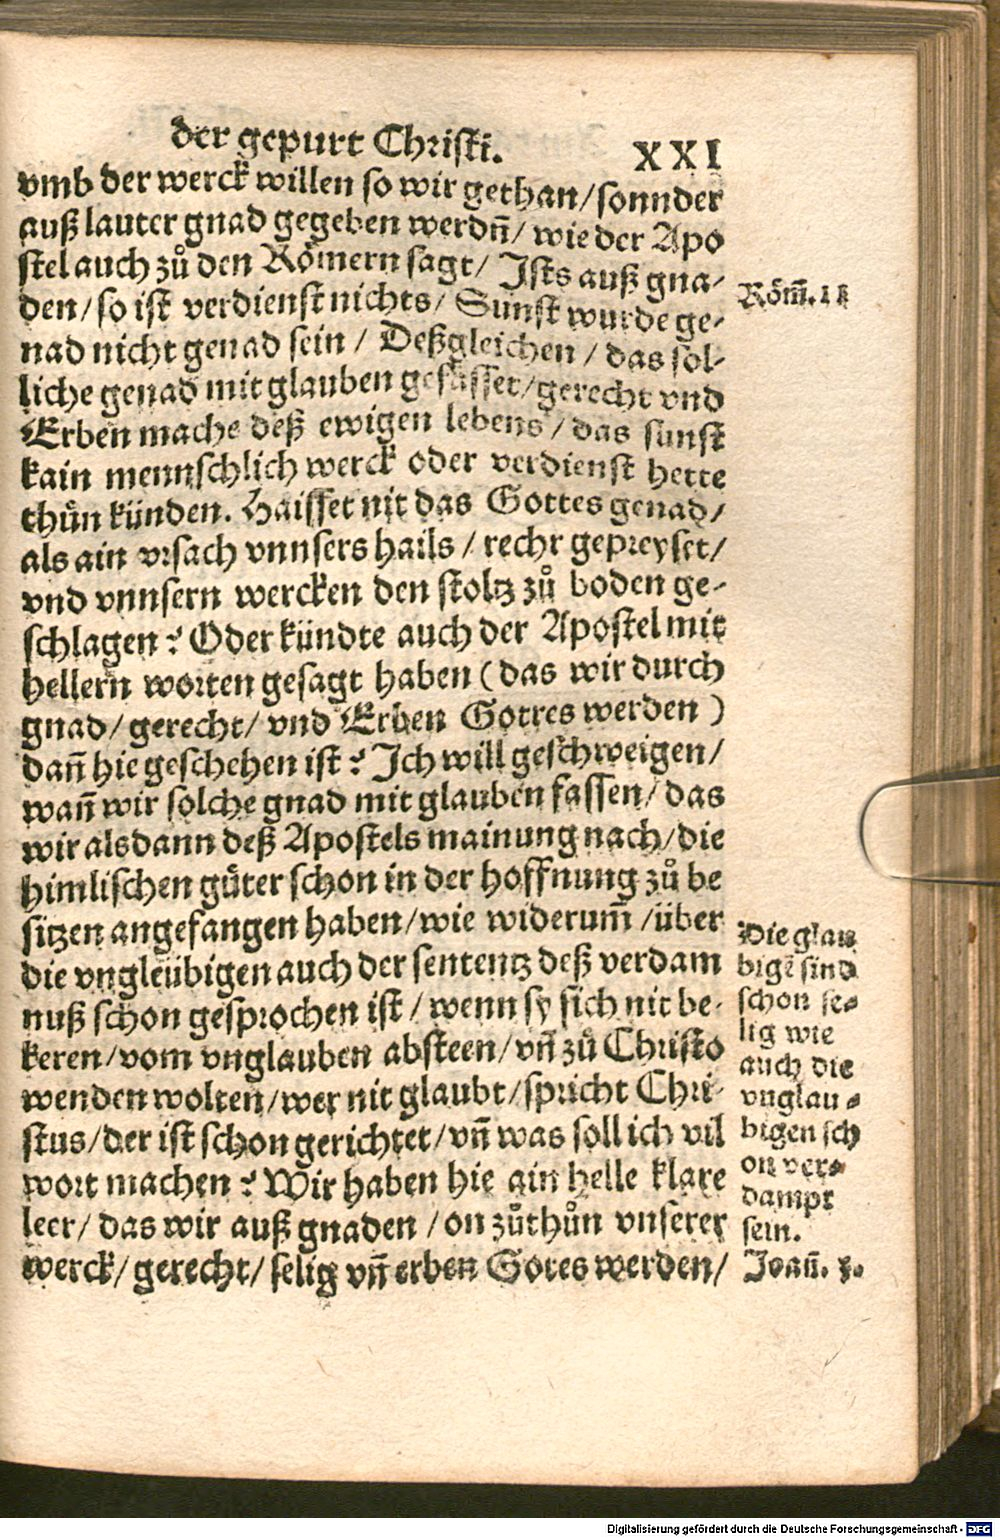 der gepurt Christi. XXI
vmb der werck willen so wir gethan/sonnder
auß lauter gnad gegeben werdn̄/ wie der Apo
stel auch zů den Römern sagt/ Ists auß gna-
den/so ist verdienst nichts/ Sunst wurde ge-
nad nicht genad sein / Deßgleichen / das sol-
liche genad mit glauben gefasset/gerecht vnd
Erben mache deß ewigen lebens/das sunst
kain mennschlich werck oder verdienst hette
thůn künden. Haisset nit das Gottes genad/
als ain vrsach vnnsers hails / recht gepreyset/
vnd vnnsern wercken den stoltz zů boden ge-
schlagen? Oder kündte auch der Apostel mit
hellern worten gesagt haben (das wir durch
gnad/gerecht/ vnd Erben Gottes werden)
dan̄ hie geschehen ist? Ich will geschweigen/
wan̄ wir solche gnad mit glauben fassen/ das
wir alsdann deß Apostels mainung nach/die
himlischen gůter schon in der hoffnung zů be
sitzen angefangen haben/wie widerum̄ /über
die vngleübigen auch der sententz deß verdam
nuß schon gesprochen ist / wenn sy sich nit be-
keren/vom vnglauben absteen/vn̄ zů Christo
wenden wolten/wer nit glaubt/spricht Chri-
stus/der ist schon gerichtet/vn̄ was soll ich vil
wort machen? Wir haben hie ain helle klare
leer/ das wir auß gnaden /on zůthůn vnserer
werck/ gerecht/ selig vn̄ erben Gotes werden/
Röm̄. 11
Die glau
bigē sind
schon se-
lig wie
auch die
vnglau-
bigen sch
on ver-
dampt
sein.
Joan̄. 3.
Digitalisierung gefördert durch die Deutsche Forschungsgemeinschaft - DFG